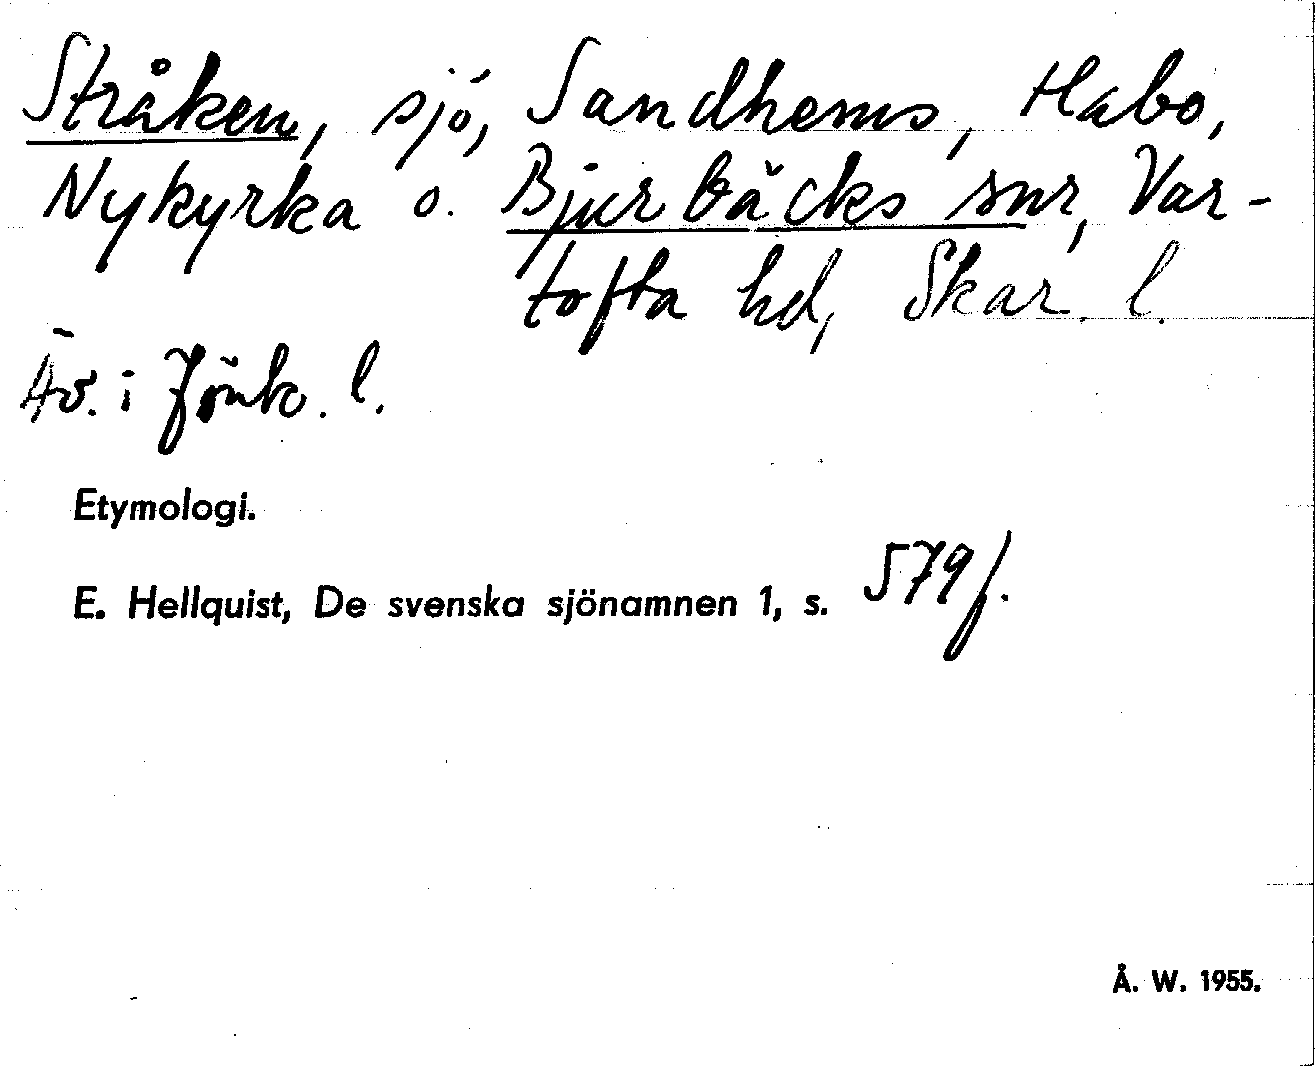 Stråken, sjö, Sandhems, Habo,
Nykyrka o. Bjurbäcks snr, Var-
tofta hd, Skar. l.
Äv. i Jönk. l.
Etymologi.
E. Hellquist, De svenska sjönamnen 1, s. 579 f.
Å. W. 1955.